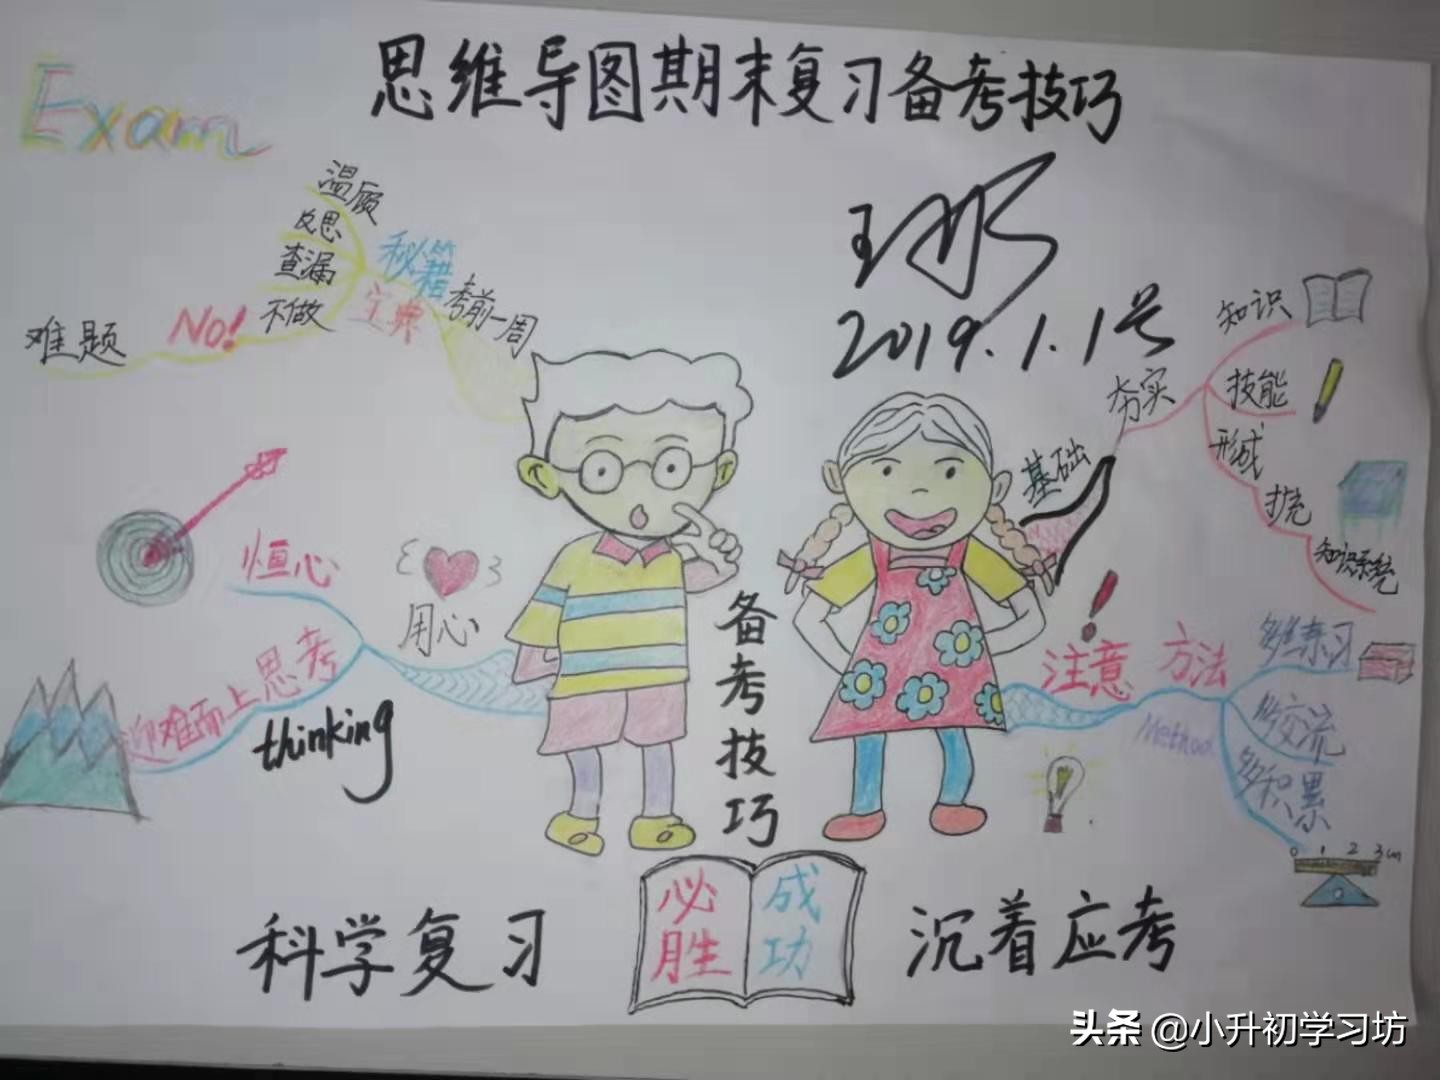 思维导图期末复习备考技巧
Exam
温顾
反思
查漏
不做
NO!
难题
秘籍
宝典
考前一周
2019.1.1号
夯实
基础
知识
技能
形成
扩充
知识系统
恒心
用心
迎难而上思考
thinking
备考技巧
注意
方法
Method
多维练习
多交流
多积累
0 1 2 3cm
必胜
成功
科学复习
沉着应考
头条 @小升初学习坊